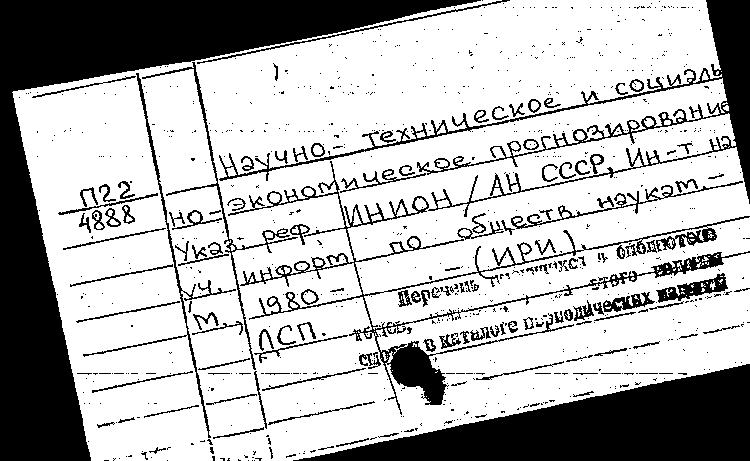 П22
4888
Научно-техническое и социаль
но-экономическое прогнозирование
Указ. реф. ИНИОН / АН СССР, Ин-т на
уч. информ. по обществ. наукам. –
М., 1980 – . – (ИРИ).
ДСП.
Перечень в библиотеке
томов, этого издания
в каталоге периодических изданий